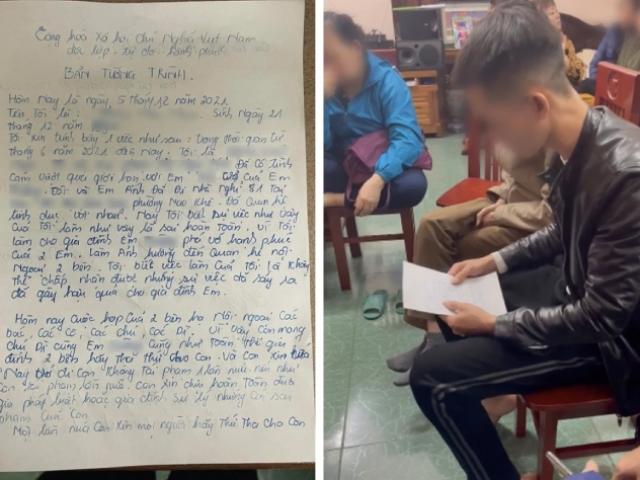 Cộng hòa Xã hội chủ Nghĩa Việt Nam
độc lập - Tự do - Hạnh phúc
BẢN TƯỜNG TRÌNH.
Hôm nay là ngày 5 tháng 12 năm 2021.
Tên Tôi là: Sinh, Ngày 21
tháng 12 năm
Tôi xin trình bày 1 việc như sau: trong thời gian từ
tháng 6 năm 2021 đến nay. Tôi là
Đã Có tình
Cảm vượt quá giới hạn với Em Của Em
. Tôi và Em Ánh Đã Đi nhà Nghỉ 81 Tại
phường Mạo Khê. Đã Quan hệ
tình dục với nhau. Nay Tôi biết sự việc như vậy
Của Tôi làm như vậy là sai hoàn Toàn. Vì Tôi
làm cho gia đình Em phá vỡ hạnh phúc
Của 2 Em. làm Ảnh hưởng đến Quan hệ nội
Ngoại 2 bên. Tôi biết việc làm Của Tôi là Không
thể chấp nhận được nhưng sự việc đã xảy ra
đã gây hậu quả cho gia đình Em.
Hôm nay cuộc họp Của 2 bên họ Nội ngoại Các
bác, Các Cô, Các chú, Các Dì. Vì vậy Con mong
chú Dì cùng Em Cũng như Toàn Thể gia
đình 2 bên hãy Tha thứ cho Con. Và Con Xin hứa
Nay trở đi Con Không Tái phạm lần nữa. nếu như
Con tái phạm lần nữa. Con xin chịu hoàn Toàn trước
pháp luật hoặc gia đình Sử lý những Cái sai
phạm Của Con
Một lần nữa Con Xin mọi người hãy Thứ Tha Cho Con